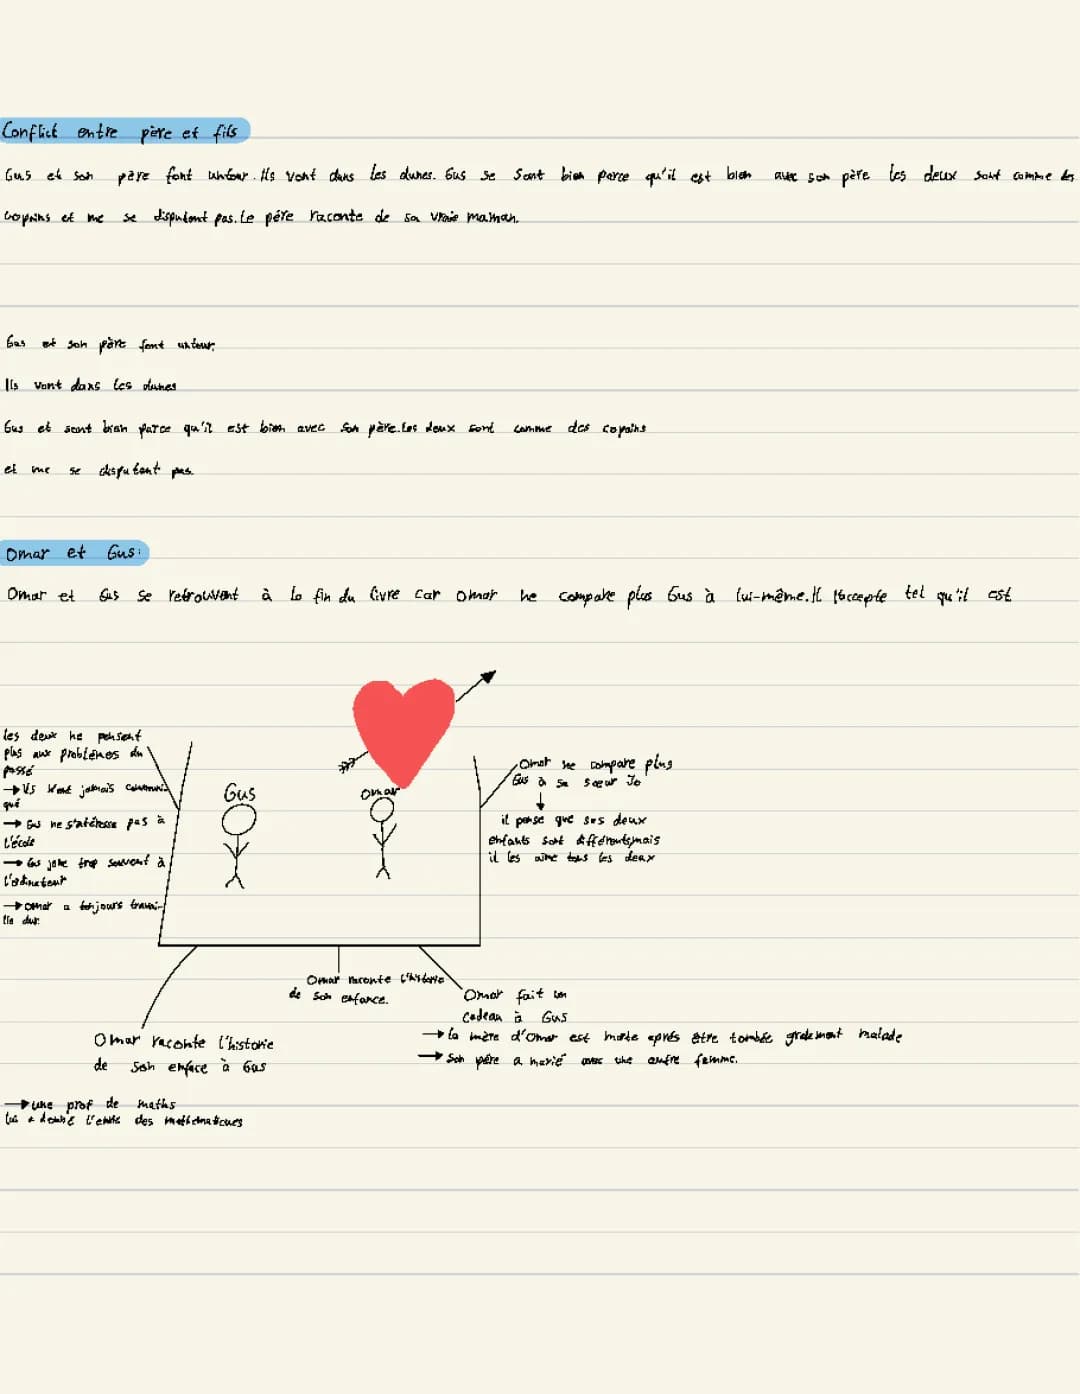 Conflict entre père et fils
Gus et son père font untour. Ils vont dans les dunes. Gus se sent bien parce qu'il est bien avec son père les deux sont comme des
copains et me se disputent pas. Le père raconte de sa vraie maman.
Gus et son père font untour.
Ils vont dans les dunes
Gus et sent bien parce qu'il est bien avec son père. Les deux sont comme des copains
et me se disputent pas.
Omar et Gus:
Omar et Gus se retrouvent à la fin du livre car Omar ne compare plus Gus à lui-même. Il l'accepte tel qu'il est
les deux ne pensent
plus aux problèmes du
passé
→ Ils n'ont jamais communi-
qué
→ Gus ne s'intéresse pas à
l'école
→ Gus joue trop souvent à
l'ordinateur
→ Omar a toujours travai-
llé dur.
Gus
Omar
Omar ne compare plus
Gus à sa sœur Jo
il pense que ses deux
enfants sont différents, mais
il les aime tous les deux
Omar raconte l'histoire
de son enfance.
Omar fait un
cadeau à Gus
→ la mère d'Omar est morte après être tombée malade
→ Son père a marié avec une autre femme.
Omar raconte l'histoire
de son enface à Gus
→ une prof de maths
lui a donné l'envie des mathématiques